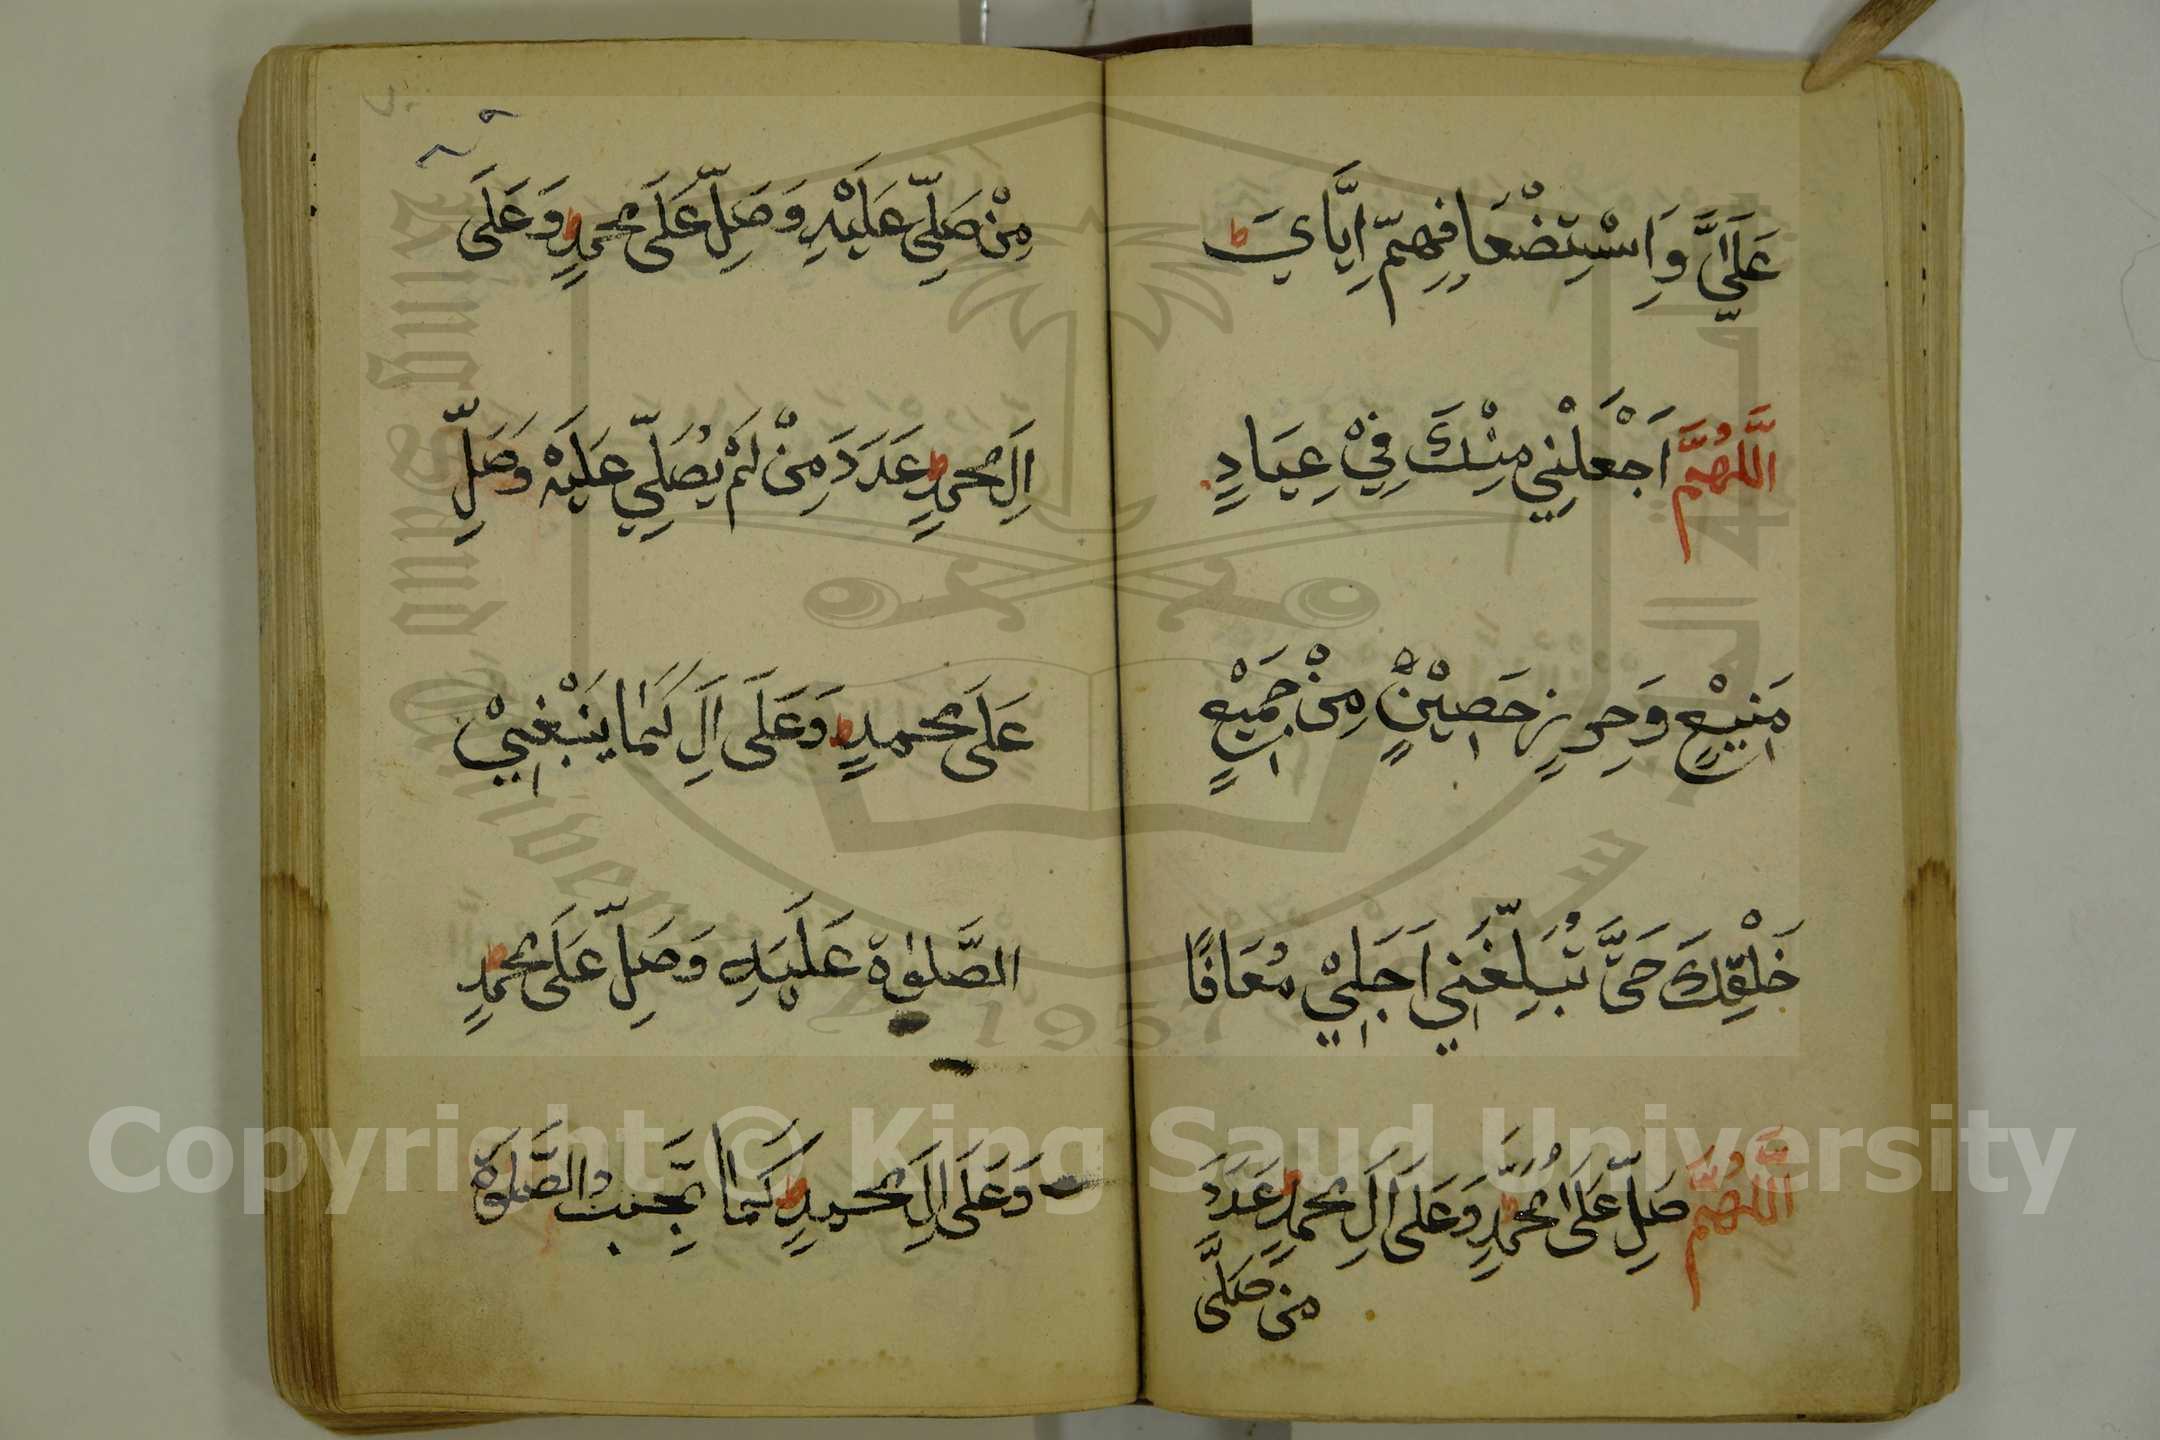 عَلَيَّ وَاسْتِضْعَافِهِمْ اِيَّايَ ط
اَللّٰهُمَّ اَجْعَلْنِي مِنْكَ فِيْ عِيَادٍ
مَنِيْعٍ وَحِرزٍ حَصِيْنٍ مِنْ جَمِيْعِ
خَلْقِكَ حَتَّى تُبَلِّغَنِي اَجَلِيْ مُعَافًا
اَللّٰهُمَّ صَلِّ عَلَى مُحَمَّدٍ وَعَلَى اَلِ مُحمدٍ عَدَدَ
من صَلَّى
٢٩
مِنْ صَلِّى عَلَيْهِ وَصَلِّ عَلَى مُحمدٍ وَعَلَى
اَلِ مُحمدٍ عَدَدَ مِنْ لَمْ يُصَلِّي عَلَيْهْ وَصَلِّ
عَلَى مُحمدٍ وَعَلَى اَلِ كَمَا يَنْبَغِيْ
الصَّلوٰة عَلَيْهِ وَصَلِّ عَلَى مُحمدٍ
وَعَلَى الِ مُحمدٍ كَمَا تَجِبُ الصَّلوٰة
King Saud University
1957
Copyright © King Saud University